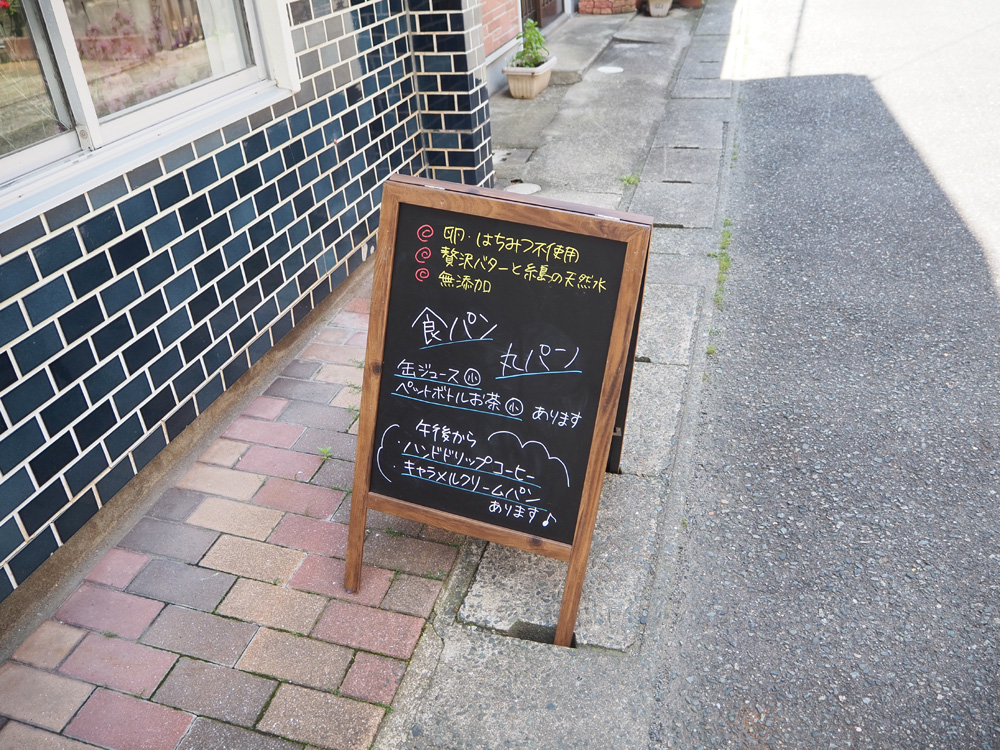 卵・はちみつ不使用
贅沢バターと糸島の天然水
無添加
食パン
丸パン
缶ジュース小
ペットボトルお茶小 あります
午後から
・ハンドドリップコーヒー
・キャラメルクリームパン
あります♪